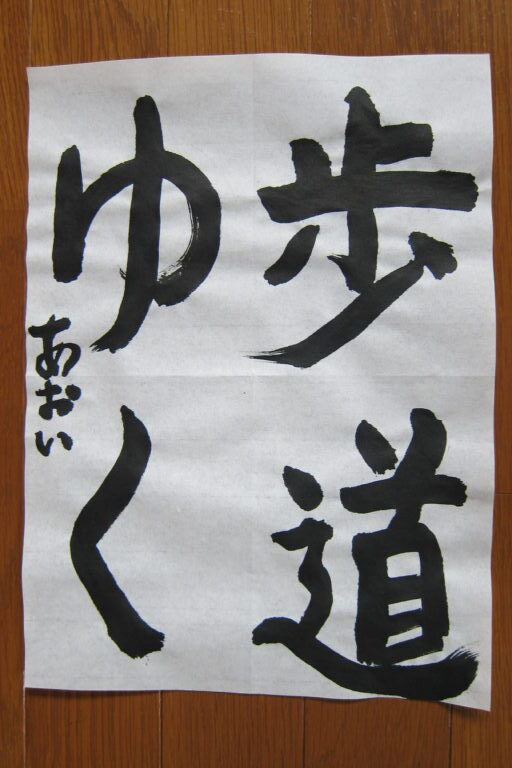 歩道
ゆく
あおい